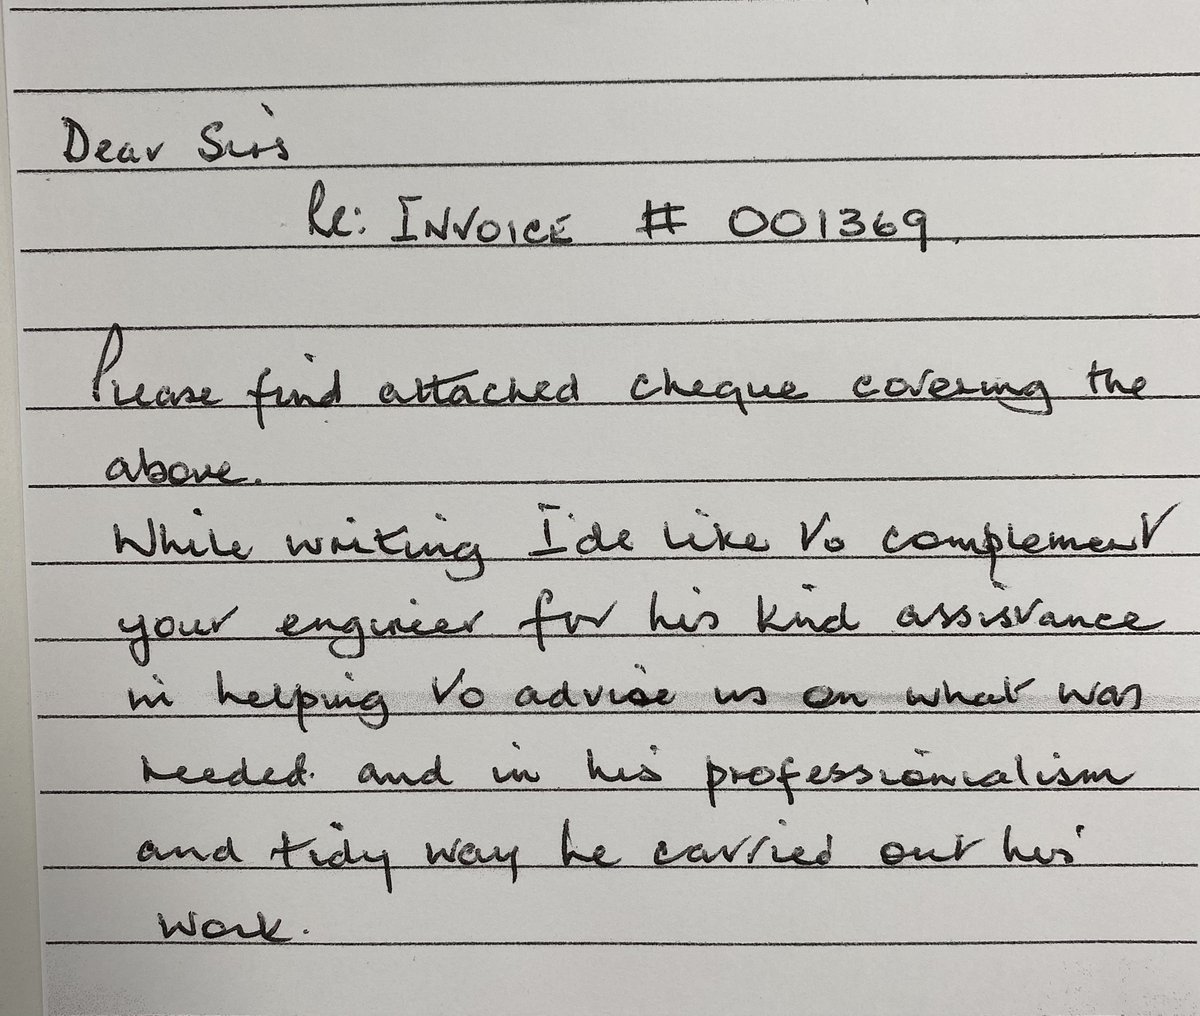 Dear Sirs
Re: INVOICE # 001369.
Please find attached cheque covering the
above.
While writing I'de like to complement
your engineer for his kind assistance
in helping to advise us on what was
needed. and in his professionialism
and tidy way he carried out his
work.